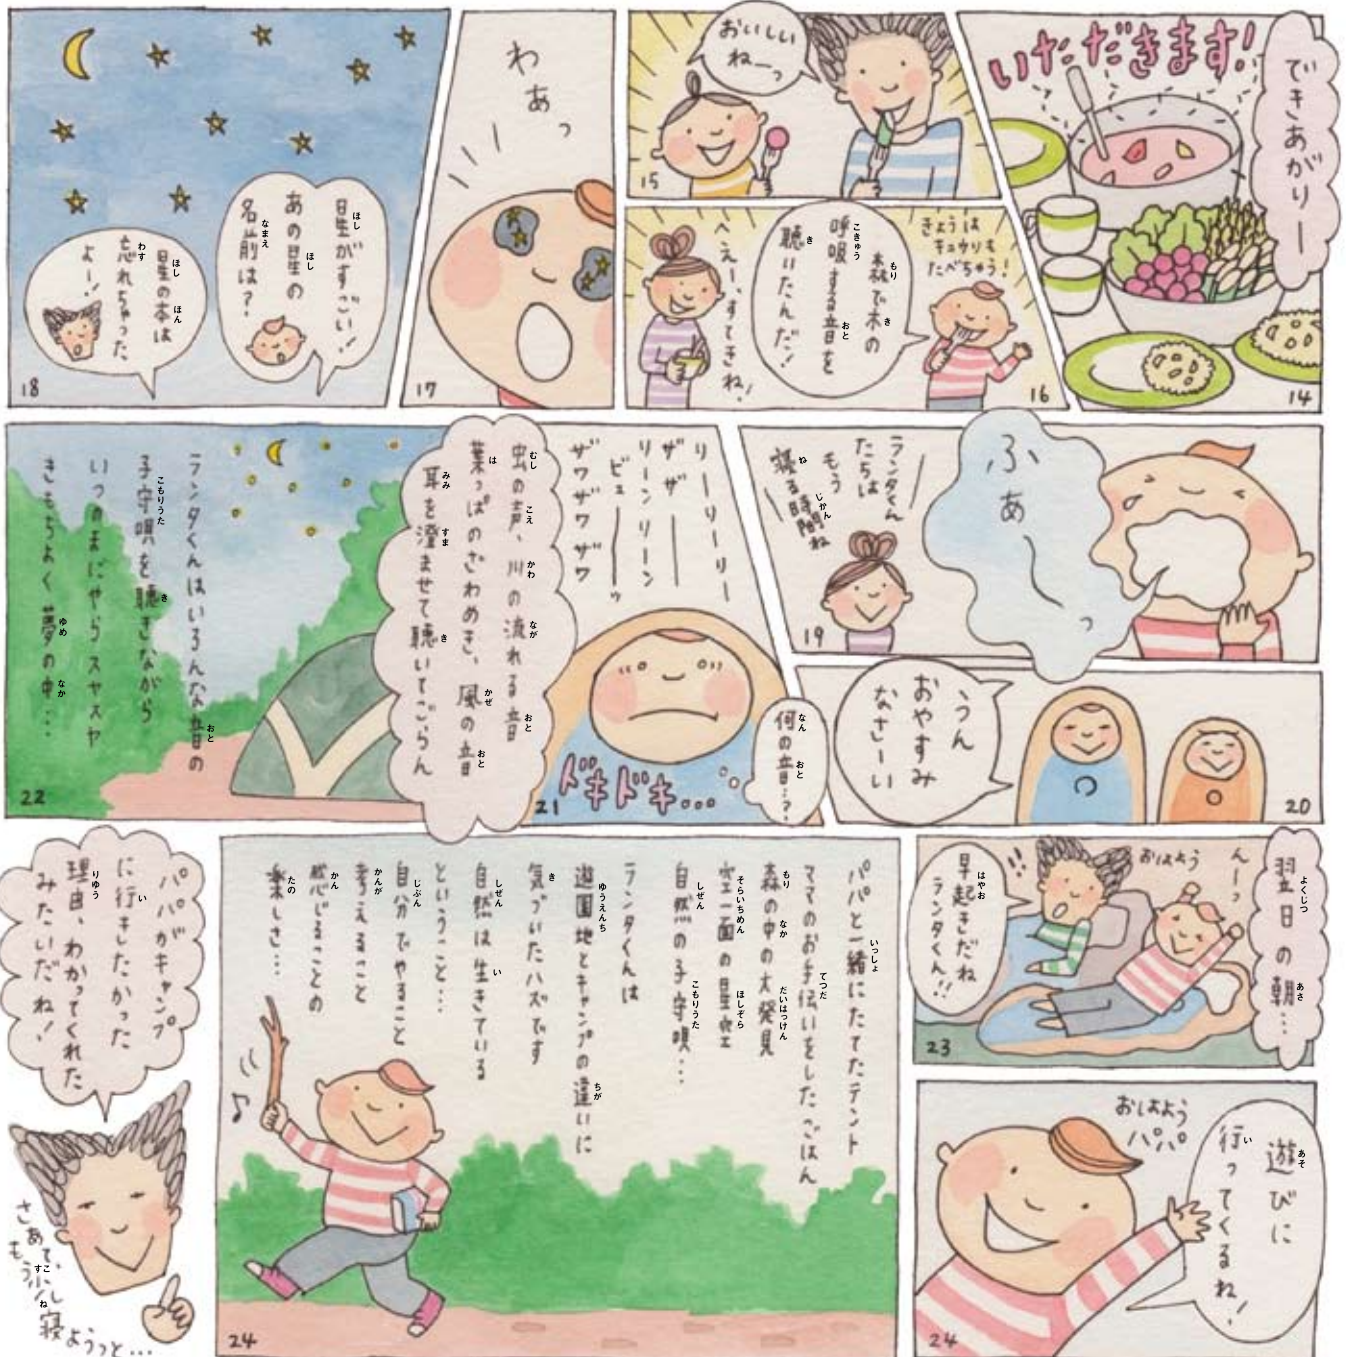 できあがりー
いただきます!
14
おいしい
ねーっ
15
きょうは
キュウリも
たべちゃう!
森で木の
呼吸する音を
聴いたんだ!
へえー、すてきね!
16
わぁっ
17
星がすごい!
あの星の
名前は?
星の本は
忘れちゃった
よー!
18
ふぁ〜っ
ランタくん
たちは
もう
寝る時間ね
19
うん
おやすみ
なさーい
20
リーリーリー
ザザー
リーンリーン
ビューーッ
ザワザワザワ
何の音…?
ドキドキ…
21
虫の声、川の流れる音
葉っぱのざわめき、風の音
耳を澄ませて聴いてごらん
ランタくんはいろんな音の
子守唄を聴きながら
いつのまにやらスヤスヤ
きもちよく夢の中…
22
翌日の朝…
んーっ
おはよう
!!
早起きだね
ランタくん!!
23
遊びに
行ってくるね!
おはよう
パパ
24
パパと一緒にたてたテント
ママのお手伝いをしたごはん
森の中の大発見
空一面の星空
自然の子守唄…
ランタくんは
遊園地とキャンプの違いに
気づいたハズです
自然は生きている
ということ…
自分でやること
考えること
感じることの
楽しさ…
24
パパがキャンプ
に行きたかった
理由、わかってくれた
みたいだね!
さあて、
もう少し
寝ようっと…